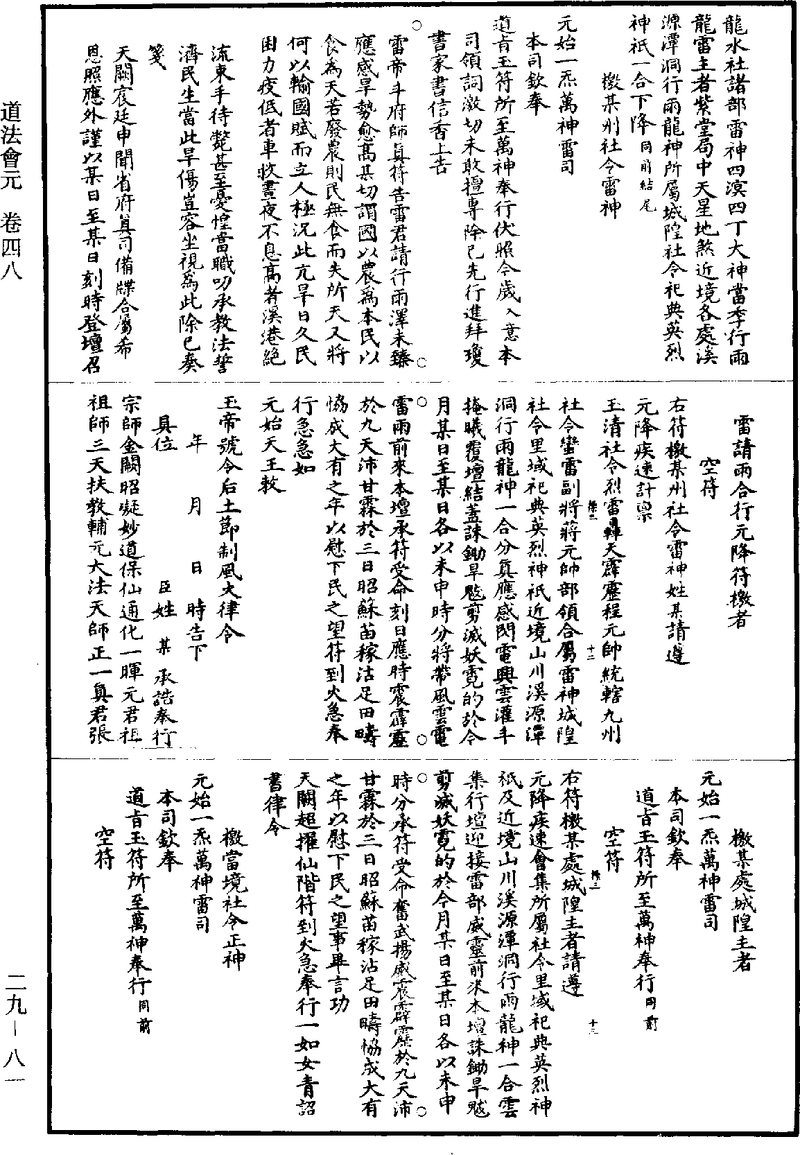 龍水社諸部雷神四溟四丁大神當季行雨
龍雷主者紫堂局中天星地煞近境各處溪
源潭洞行雨龍神所屬城隍社令祀典英烈
神祇一合下降同前結尾
檄某州社令雷神
元始一炁萬神雷司
本司欽奉
道旨玉符所至萬神奉行伏照今歲入意本
司領詞激切未敢擅專除已先行進拜瓊
書家書信香上告
雷帝斗府師真符告雷君請行雨澤未臻
應感旱勢愈高某切謂國以農為本民以
食為天若廢農則民無食而失所天又將
何以輸國賦而立人極況此亢旱日久民
困力疲低者車救晝夜不息高者溪港絕
流束手待斃甚至憂惶當職叨承教法誓
濟民生當此旱傷豈容坐視為此除已奏
箋
天闕宸廷申聞省府真司備牒合屬希
恩照應外謹以某日至某日刻時登壇召
雷請雨合行元降符檄者
空符
右符檄某州社令雷神姓某請遵
元降疾速計稟
玉清社令烈雷轟天霹靂程元帥統轄九州
社令蠻雷副將蔣元帥部領合屬雷神城隍
社令里域祀典英烈神祇近境山川溪源潭
洞行雨龍神一合分真應感閃電興雲灌斗
掩曦覆壇結蓋誅鋤旱魃剪滅妖霓的於今
月某日至某日各以未申時分將帶風雲電
雷雨前來本壇承符受命刻日應時震霹靂
於九天沛甘霖於三日昭蘇苗稼沾足田疇
恊成大有之年以慰下民之望符到火急奉
行急急如
元始天王敕
玉帝號令后土節制風火律令
年　月　日　時告下
具位　臣姓　某　承誥奉行
宗師金闕昭凝妙道保仙通化一暉元君祖
祖師三天扶教輔元大法天師正一真君張
檄某處城隍主者
元始一炁萬神雷司
本司欽奉
道旨玉符所至萬神奉行同前
空符
右符檄某處城隍主者請遵
元降疾速會集所屬社令里域祀典英烈神
祇及近境山川溪源潭洞行雨龍神一合雲
集行壇迎接雷部威靈前來本壇誅鋤旱魃
剪滅妖霓的於今月某日至某日各以未申
時分承符受命奮武揚威震霹靂於九天沛
甘霖於三日昭蘇苗稼沾足田疇恊成大有
之年以慰下民之望事畢言功
天闕超擢仙階符到火急奉行一如女青詔
書律令
檄當境社令正神
元始一炁萬神雷司
本司欽奉
道旨玉符所至萬神奉行同前
空符
十二
十三
道法會元　卷四八
二九—八一